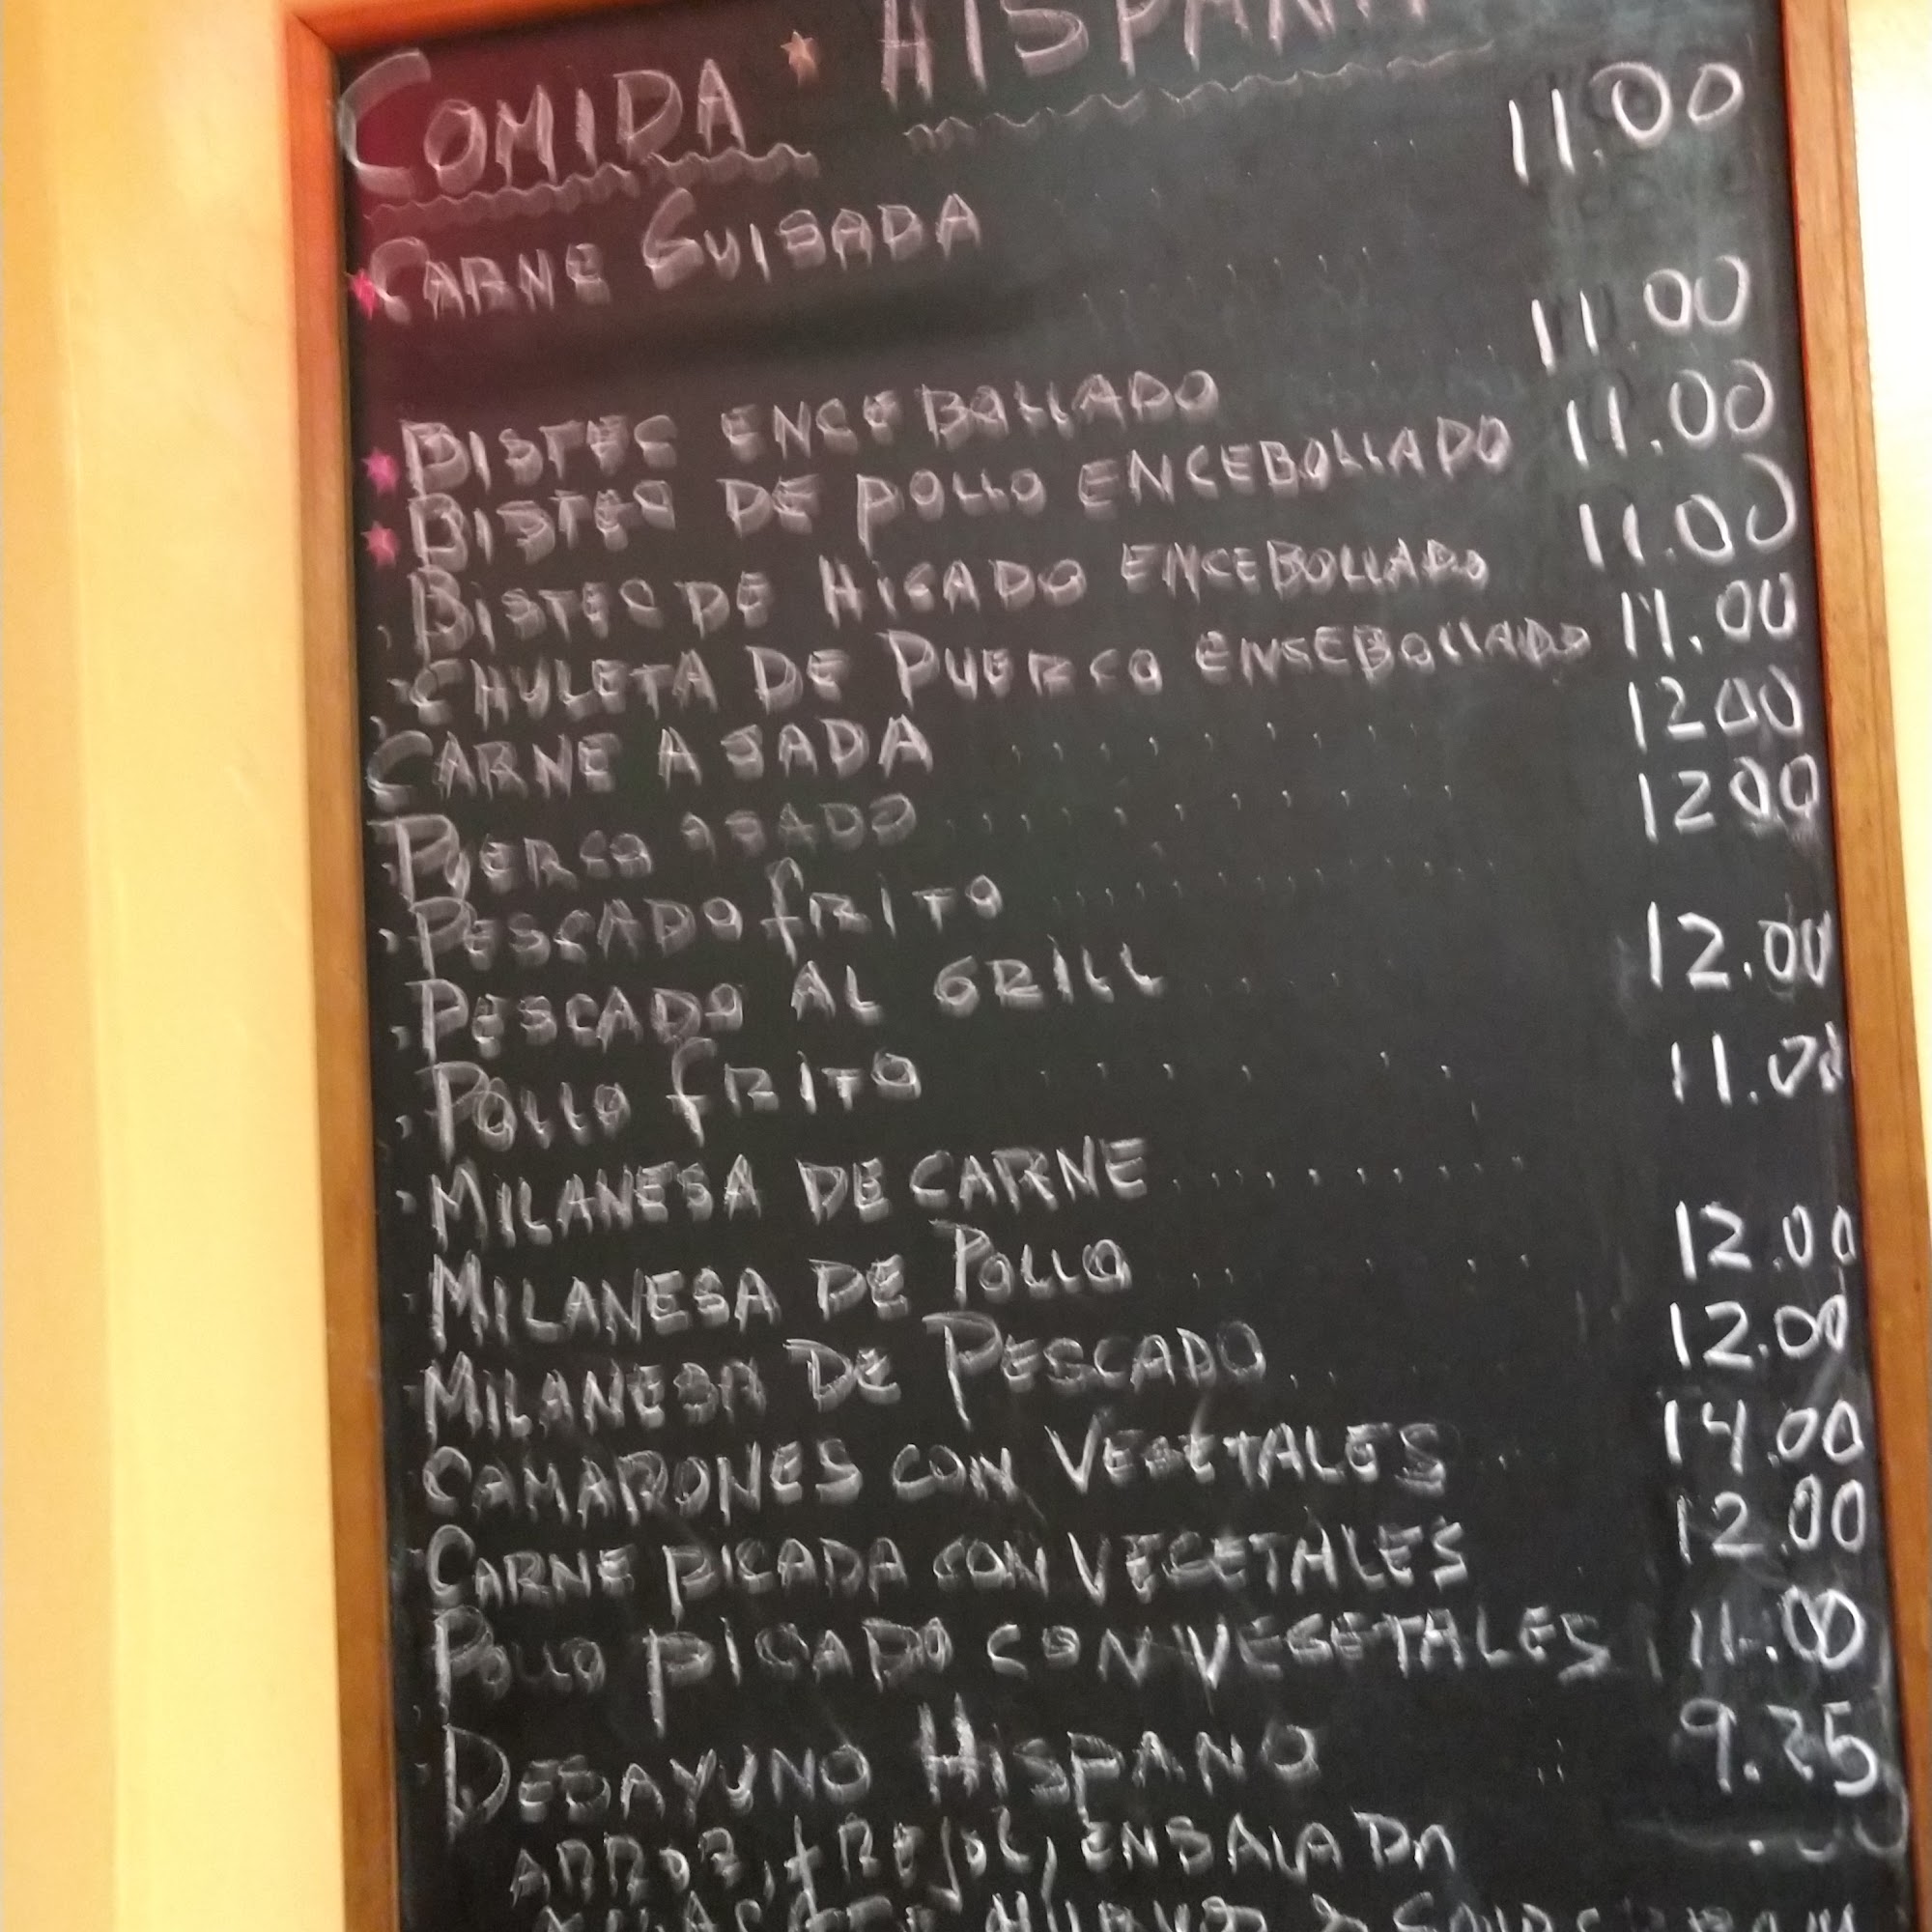 COMIDA HISPANA
CARNE GUISADA 11.00
BISTEC ENCEBOLLADO 11.00
BISTEC DE POLLO ENCEBOLLADO 11.00
BISTEC DE HIGADO ENCEBOLLADO 11.00
CHULETA DE PUERCO ENSEBOLLADO 11.00
CARNE ASADA 1200
PUERCO ASADO 1200
PESCADO FRITO
PESCADO AL GRILL 12.00
POLLO FRITO 11.00
MILANESA DE CARNE
MILANESA DE POLLO 12.00
MILANESA DE PESCADO 12.00
CAMARONES CON VEGETALES 14.00
CARNE PICADA CON VEGETALES 12.00
POLLO PICADO CON VEGETALES 11.00
DESAYUNO HISPANO 9.25
ARROZ, FREJOL, ENSALADA